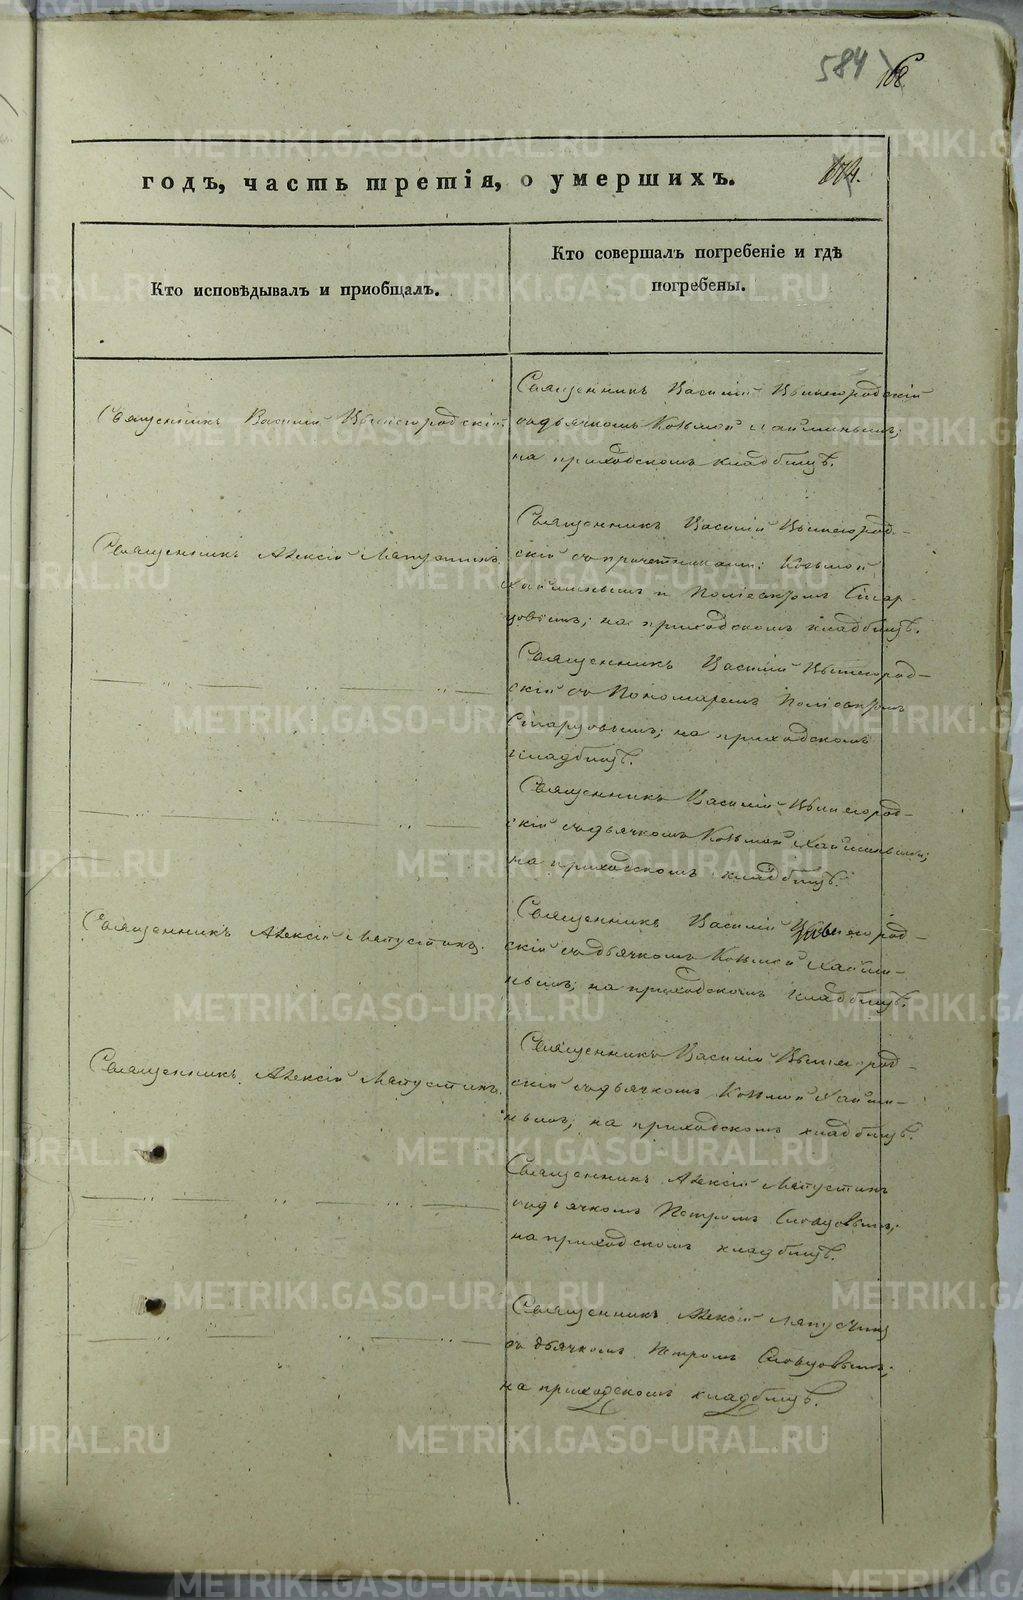 584
168.
годъ, часть третія, о умершихъ.
174.
Кто исповѣдывалъ и приобщалъ.
Кто совершалъ погребеніе и гдѣ
погребены.
Священникъ Василій Вышегородскій.
Священникъ Василій Вышегородскій
съ дьячкомъ Козьмой
на приходскомъ кладбищѣ.
Священникъ Алексій Ляпустинъ.
Священникъ Василій Вышегород-
скій съ причетниками: Козьмой
и Поліевктомъ Стар-
цовымъ; на приходскомъ кладбищѣ.
Священникъ Василій Вышегород-
скій съ Пономаремъ Поліевктомъ
Старцовымъ; на приходскомъ
кладбищѣ.
Священникъ Василій Вышегород-
скій съ дьячкомъ Козьмой
на приходскомъ кладбищѣ.
Священникъ Алексій Ляпустинъ.
Священникъ Василій Вышегород-
скій съ дьячкомъ Козьмой
на приходскомъ кладбищѣ.
Священникъ Алексій Ляпустинъ.
Священникъ Василій Вышегород-
скій съ дьячкомъ Козьмой
на приходскомъ кладбищѣ.
Священникъ Алексій Ляпустинъ
съ дьячкомъ Петромъ Словцовымъ;
на приходскомъ кладбищѣ.
Священникъ Алексій Ляпустинъ
съ дьячкомъ Петромъ Словцовымъ;
на приходскомъ кладбищѣ.
METRIKI.GASO-URAL.RU